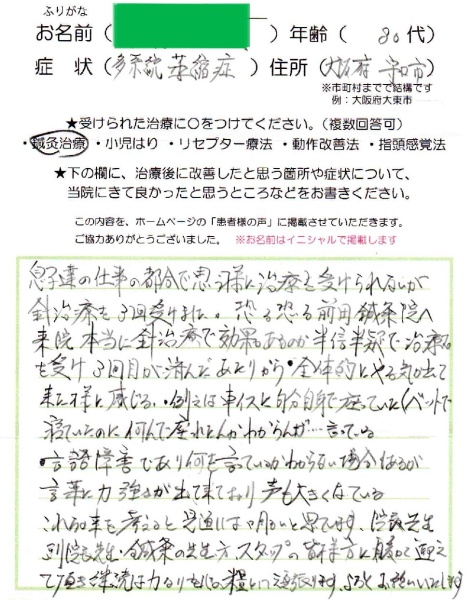 ふりがな
お名前( )年齢( 80代)
症 状(多系統萎縮症)住所(大阪府 守口市)
※市町村までで結構です
例:大阪府大東市
★受けられた治療に○をつけてください。(複数回答可)
・鍼灸治療・小児はり・リセプター療法・動作改善法・指頭感覚法
★下の欄に、治療後に改善したと思う箇所や症状について、
当院にきて良かったと思うところなどをお書きください。
この内容を、ホームページの「患者様の声」に掲載させていただきます。
ご協力ありがとうございました。 ※お名前はイニシャルで掲載します
息子達の仕事の都合で思う様に治療を受けられないが
針治療を3回受けました。恐る恐る前田鍼灸院へ
来院 本当に針治療で効果あるのか半信半疑で治療
を受け3回目が済んだあたりから・全体的にやる気が出て
来た様に感じる。・例えば車イスに自分自身で座っていた(ベットで
寝ていたのに何んで座れたんかわからんが…言っている
・言語障害であり何を言っているかわからない場合もあるが
言葉に力強さが出て来ており 声も大きくなっている
これらの事を考えると 見通しは明るいと思てます。院長先生
副院長先生・鍼灸の先生方 スタッフの皆様方に暖かく迎え